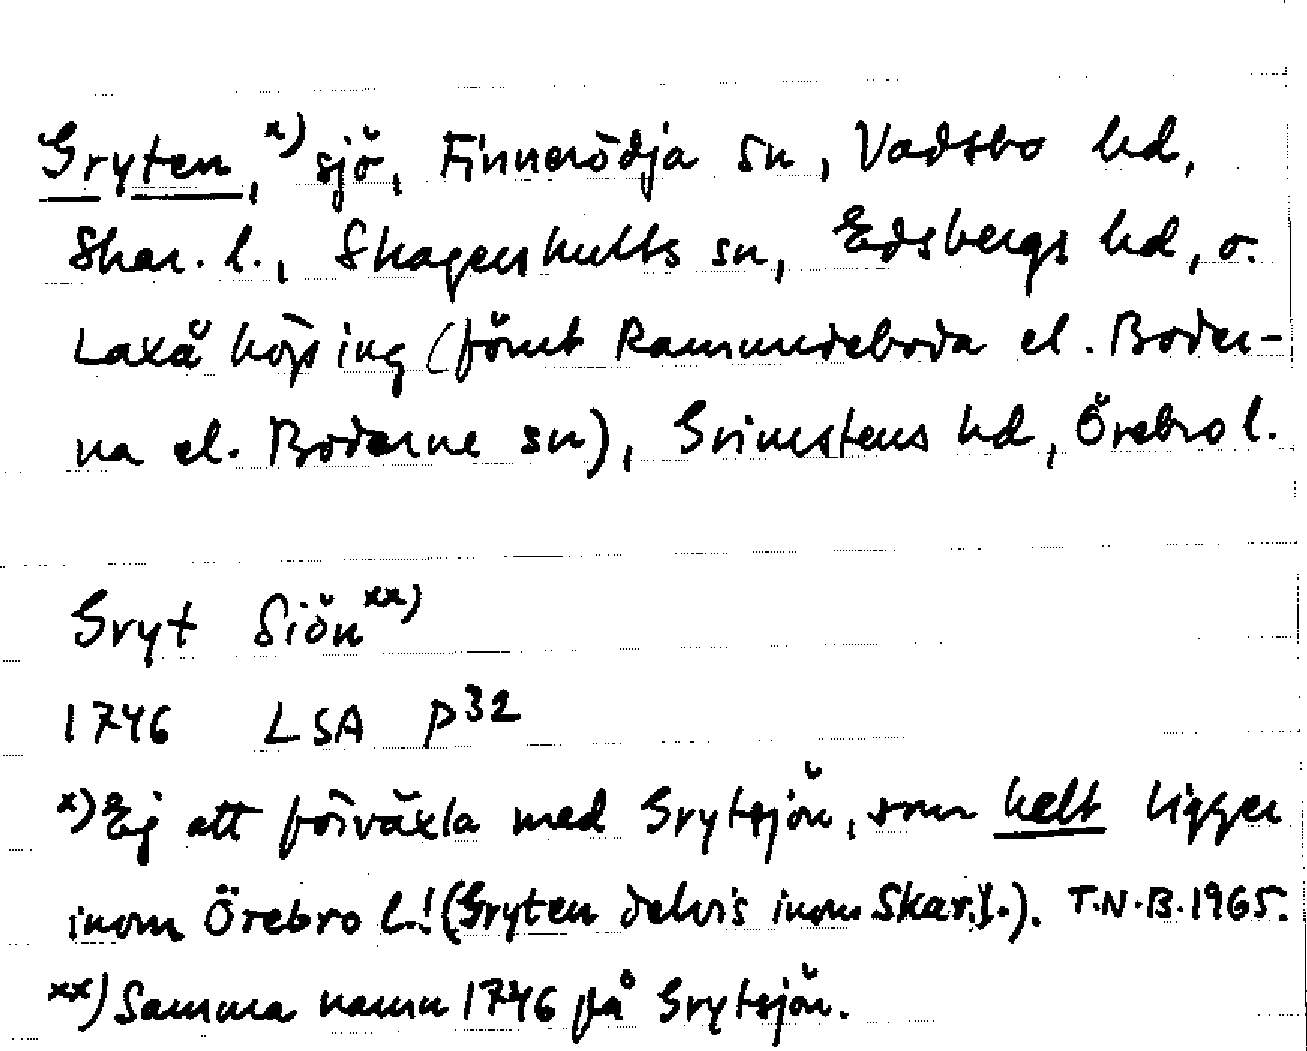 Gryten,ˣ⁾ sjö, Finnerödja sn, Vadsbo hd,
Skar. l., Skagershults sn, Edsbergs hd, o.
Laxå köping (förut Ramundeboda el. Boder-
na el. Boderne sn), Grimstens hd, Örebro l.
Gryt Siönˣˣ⁾
1746 LSA P32
x) Ej att förväxla med Grytsjön, som helt ligger
inom Örebro l.! (Gryten delvis inom Skar.l.). T.N.B. 1965.
xx) Samma namn 1746 på Grytsjön.